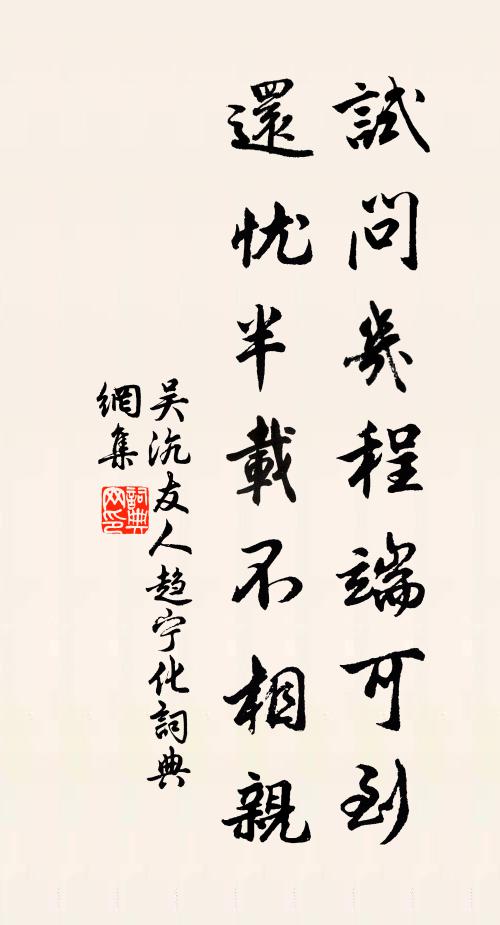 試問幾程端可到
還忧半載不相親
吴沆友人趋宁化詞典
網集
詞典
网印